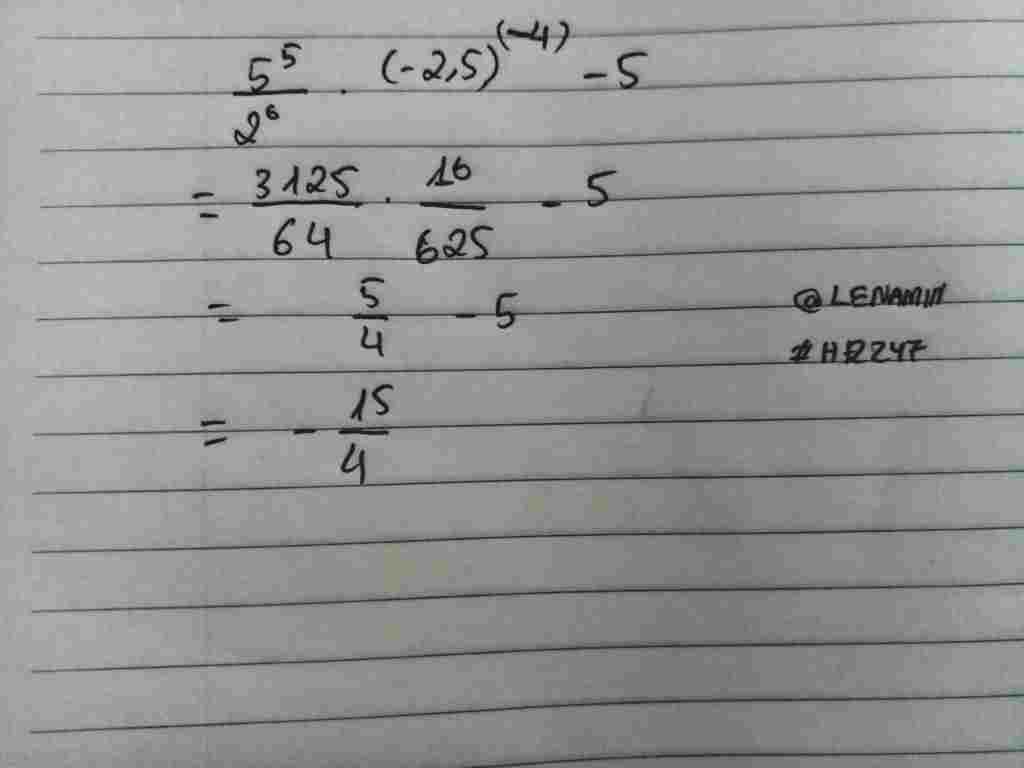 5^5/2^6 · (-2,5)^(-4) - 5
= 3125/64 · 16/625 - 5
= 5/4 - 5
@LENAMIN
#H2247
= - 15/4